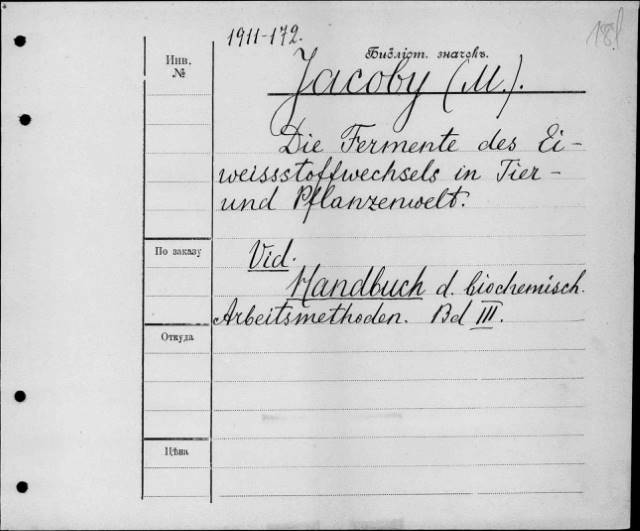 1911-172.
Инв. №
Библіот. значекъ.
Jacoby (M.).
Die Fermente des Ei-
weissstoffwechsels in Tier-
und Pflanzenwelt.
По заказу
Vid.
Handbuch d. biochemisch.
Arbeitsmethoden. Bd III.
Откуда
Цѣна